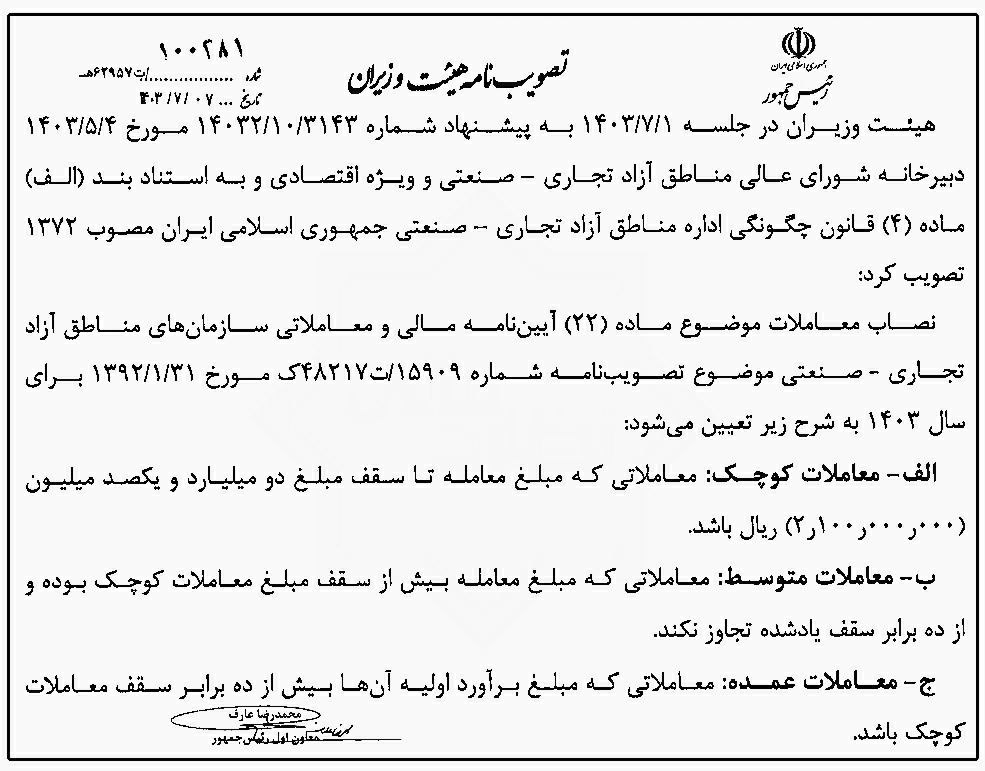 جمهوری اسلامی ایران
رئیس جمهور
تصویب‌نامه هیئت وزیران
۱۰۰۲۸۱
شماره ................./ت۶۲۹۵۷هـ
تاریخ ... ۱۴۰۳/۷/۰۷
هیئت وزیران در جلسه ۱۴۰۳/۷/۱ به پیشنهاد شماره ۱۴۰۳۲/۱۰/۳۱۴۳ مورخ ۱۴۰۳/۵/۴
دبیرخانه شورای عالی مناطق آزاد تجاری – صنعتی و ویژه اقتصادی و به استناد بند (الف)
ماده (۴) قانون چگونگی اداره مناطق آزاد تجاری – صنعتی جمهوری اسلامی ایران مصوب ۱۳۷۲
تصویب کرد:
نصاب معاملات موضوع ماده (۲۲) آیین‌نامه مالی و معاملاتی سازمان‌های مناطق آزاد
تجاری - صنعتی موضوع تصویب‌نامه شماره ۱۵۹۰۹/ت۴۸۲۱۷ک مورخ ۱۳۹۲/۱/۳۱ برای
سال ۱۴۰۳ به شرح زیر تعیین می‌شود:
الف- معاملات کوچک: معاملاتی که مبلغ معامله تا سقف مبلغ دو میلیارد و یکصد میلیون
(۲ر۱۰۰ر۰۰۰ر۰۰۰) ریال باشد.
ب- معاملات متوسط: معاملاتی که مبلغ معامله بیش از سقف مبلغ معاملات کوچک بوده و
از ده برابر سقف یادشده تجاوز نکند.
ج- معاملات عمده: معاملاتی که مبلغ برآورد اولیه آن‌ها بیش از ده برابر سقف معاملات
کوچک باشد.
محمدرضا عارف
معاون اول رئیس جمهور